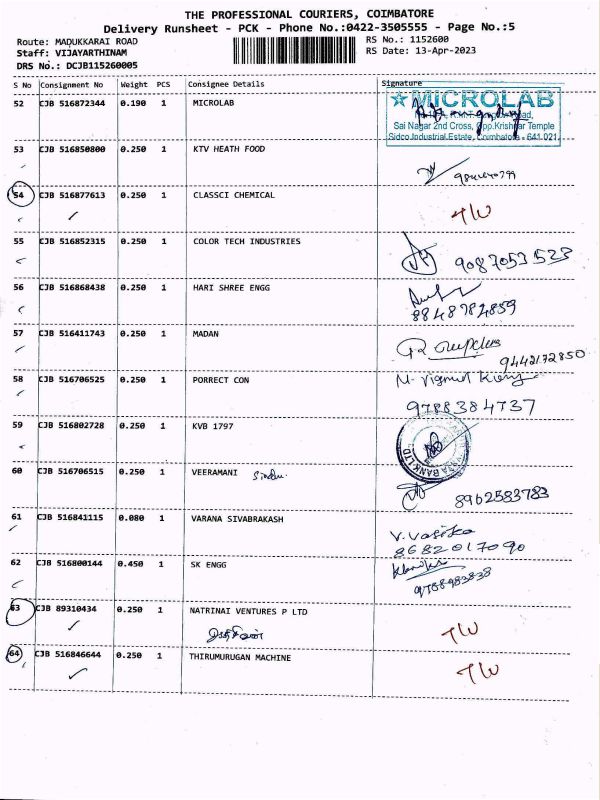 THE PROFESSIONAL COURIERS, COIMBATORE
Delivery Runsheet - PCK - Phone No.:0422-3505555 - Page No.:5
Route: MADUKKARAI ROAD RS No.: 1152600
Staff: VIJAYARTHINAM RS Date: 13-Apr-2023
DRS No.: DCJB115260005
S No Consignment No Weight PCS Consignee Details Signature
52 CJB 516872344 0.190 1 MICROLAB
MICROLAB
Sai Nagar 2nd Cross, Opp.Krishnar Temple
Sidco Industrial Estate, Coimbatore - 641 021.
53 CJB 516850800 0.250 1 KTV HEATH FOOD
54 CJB 516877613 0.250 1 CLASSCI CHEMICAL
T/W
55 CJB 516852315 0.250 1 COLOR TECH INDUSTRIES
9087053523
56 CJB 516868438 0.250 1 HARI SHREE ENGG
8848784859
57 CJB 516411743 0.250 1 MADAN
9442172850
58 CJB 516706525 0.250 1 PORRECT CON
9788384737
59 CJB 516802728 0.250 1 KVB 1797
60 CJB 516706515 0.250 1 VEERAMANI Sindu
8962583783
61 CJB 516841115 0.080 1 VARANA SIVABRAKASH
V. Vasika
8682017090
62 CJB 516800144 0.450 1 SK ENGG
9788983838
63 CJB 89310434 0.250 1 NATRINAI VENTURES P LTD
T/W
64 CJB 516846644 0.250 1 THIRUMURUGAN MACHINE
T/W